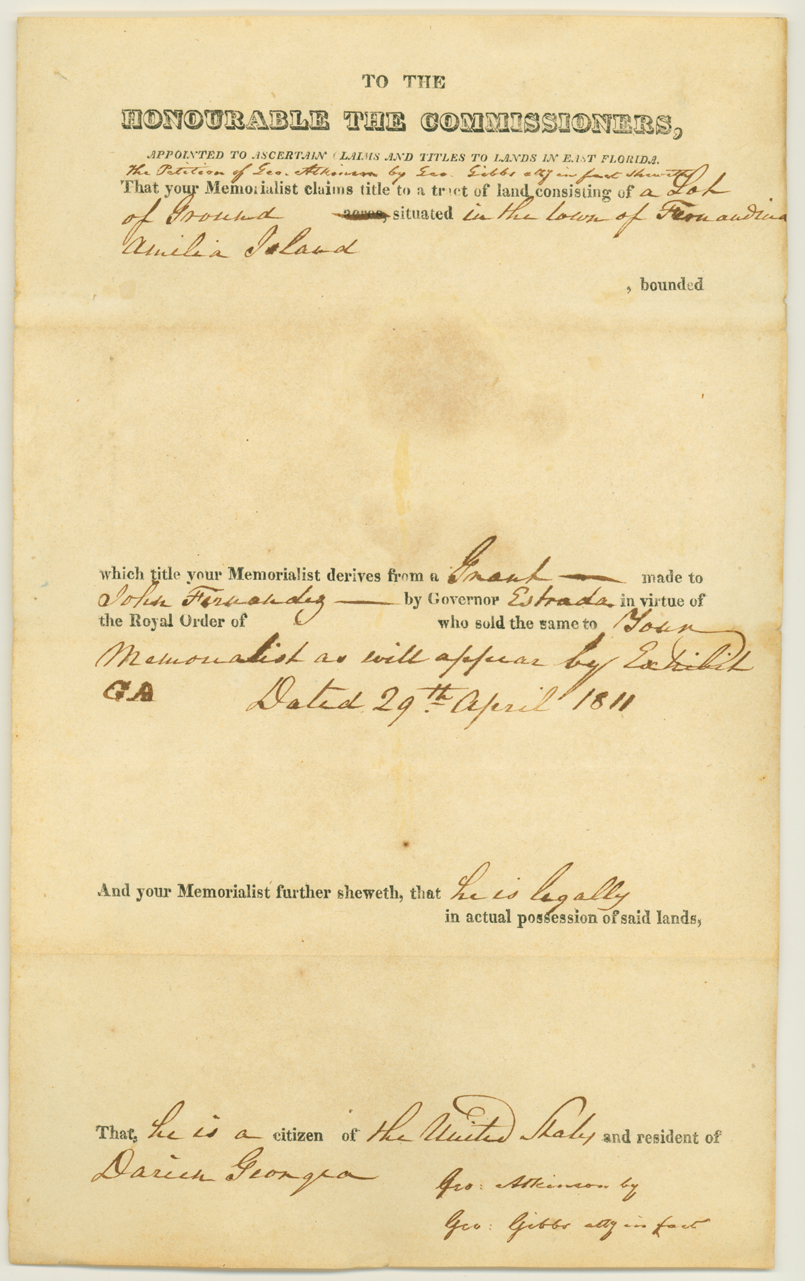 TO THE
HONOURABLE THE COMMISSIONERS,
APPOINTED TO ASCERTAIN CLAIMS AND TITLES TO LANDS IN EAST FLORIDA.
The Petition of Geo. Atkinson by Geo. Gibbs atty in fact sheweth
That your Memorialist claims title to a tract of land consisting of a Lot
of Ground acres, situated in the town of Fernandina
Amilia Island
, bounded
which title your Memorialist derives from a Grant — made to
John Fernandez — by Governor Estrada in virtue of
the Royal Order of who sold the same to Your
Memorialist as will appear by Exhibit
GA Dated 29th April 1811
And your Memorialist further sheweth, that he is legally
in actual possession of said lands,
That, he is a citizen of the United States and resident of
Darien Georgia
Geo: Atkinson by
Geo: Gibbs atty in fact